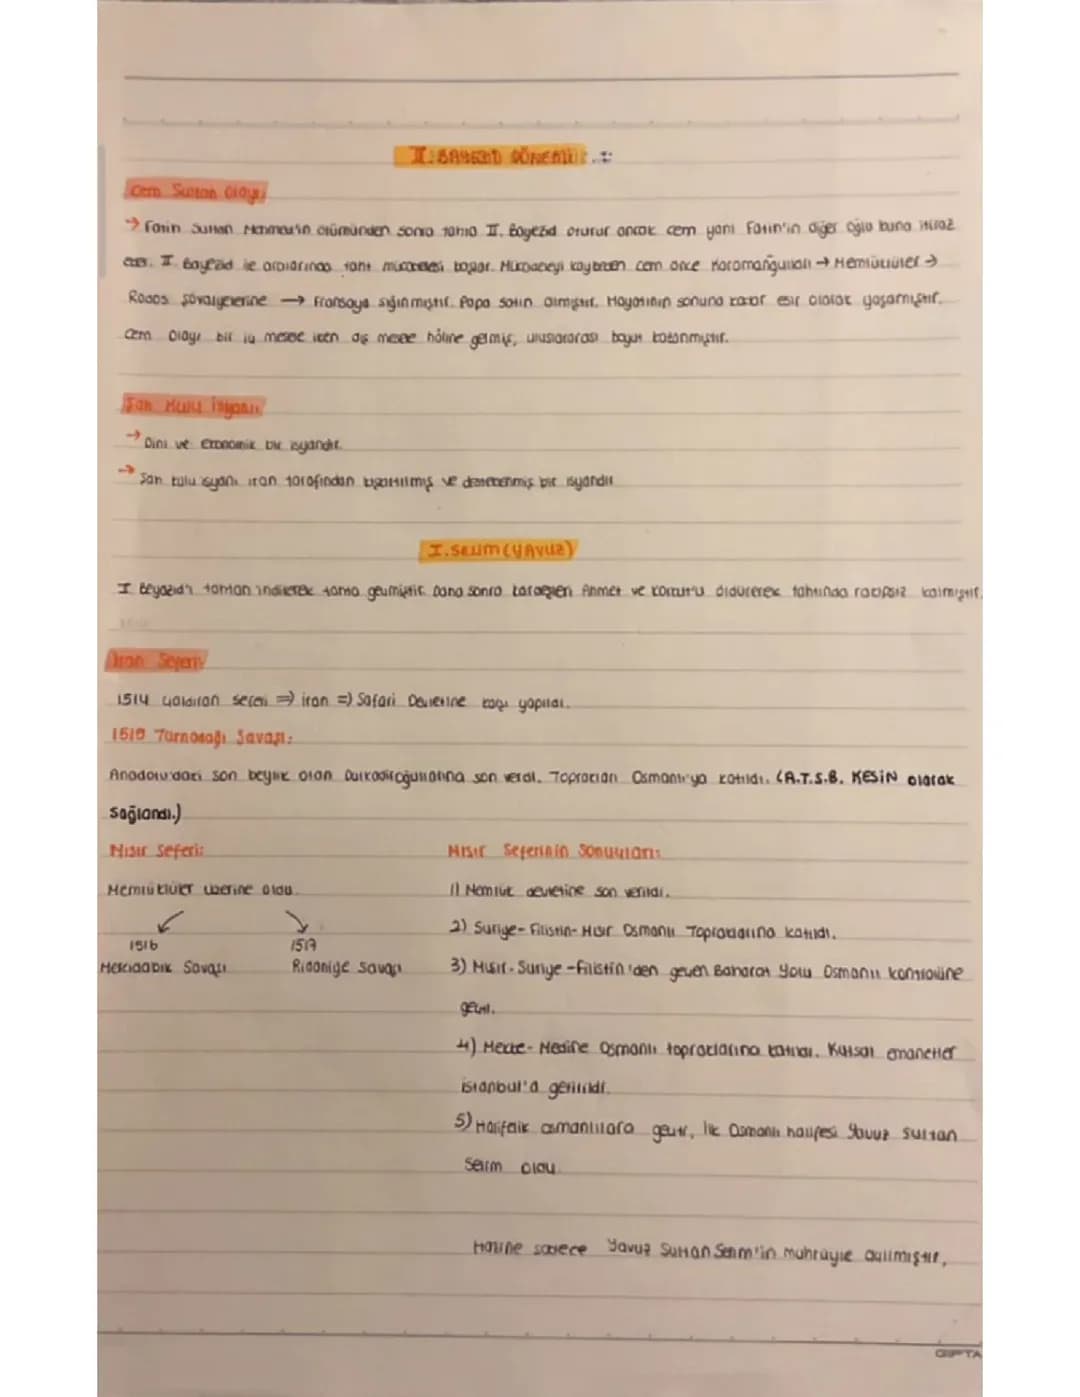 II. BAYEZİD DÖNEMİ :
Cem Sultan Olayı
→ Fatih Sultan Mehmet'in ölümünden sonra tahta II. Bayezid oturur ancak cem yani Fatih'in diğer oğlu buna itiraz
eder. II. Bayezid ile aralarında taht mücadelesi başlar. Mücadeleyi kaybeden cem önce Karamanoğulları → Memlüklüler →
Rodos şövalyelerine → Fransaya sığınmıştır. Papa satın almıştır. Hayatının sonuna kadar esir olarak yaşamıştır.
Cem Olayı bir iç mesele iken dış mesele hâline gelmiş, uluslararası boyut kazanmıştır.
Şah Kulu İsyanı
→ Dini ve Ekonomik bir isyandır.
→ Şah kulu isyanı iran tarafından kışkırtılmış ve desteklenmiş bir isyandır
I. SELİM (YAVUZ)
I Beyazıd'ı tahtan indirerek tahta geçmiştir. Daha sonra kardeşleri Ahmet ve Korkut'u öldürerek tahtında rakipsiz kalmıştır.
İran Seferi
1514 Çaldıran seferi ⇒ iran ⇒ Safavi Devletine karşı yapıldı.
1515 Turnadağı Savaşı:
Anadolu'daki son beylik olan Dulkadiroğullarına son verdi. Toprakları Osmanlı'ya katıldı. (A.T.S.B. KESİN olarak
sağlandı.)
Mısır Seferi:
Memlüklüler üzerine oldu.
1516 1517
Mercidabık Savaşı Ridaniye Savaşı
Mısır Seferinin Sonuçları:
1) Memlük devletine son verildi.
2) Suriye- Filistin- Mısır Osmanlı Topraklarına katıldı.
3) Mısır- Suriye -Filistin'den geçen Baharat Yolu Osmanlı kontrolüne
geçti.
4) Mekke- Medine Osmanlı topraklarına katıldı. Kutsal emanetler
istanbul'a getirildi.
5) Halifelik osmanlılara geçti, ilk Osmanlı halifesi Yavuz Sultan
Selim oldu.
Hazine sadece Yavuz Sultan Selim'in mührüyle açılmıştır,
GIPTA